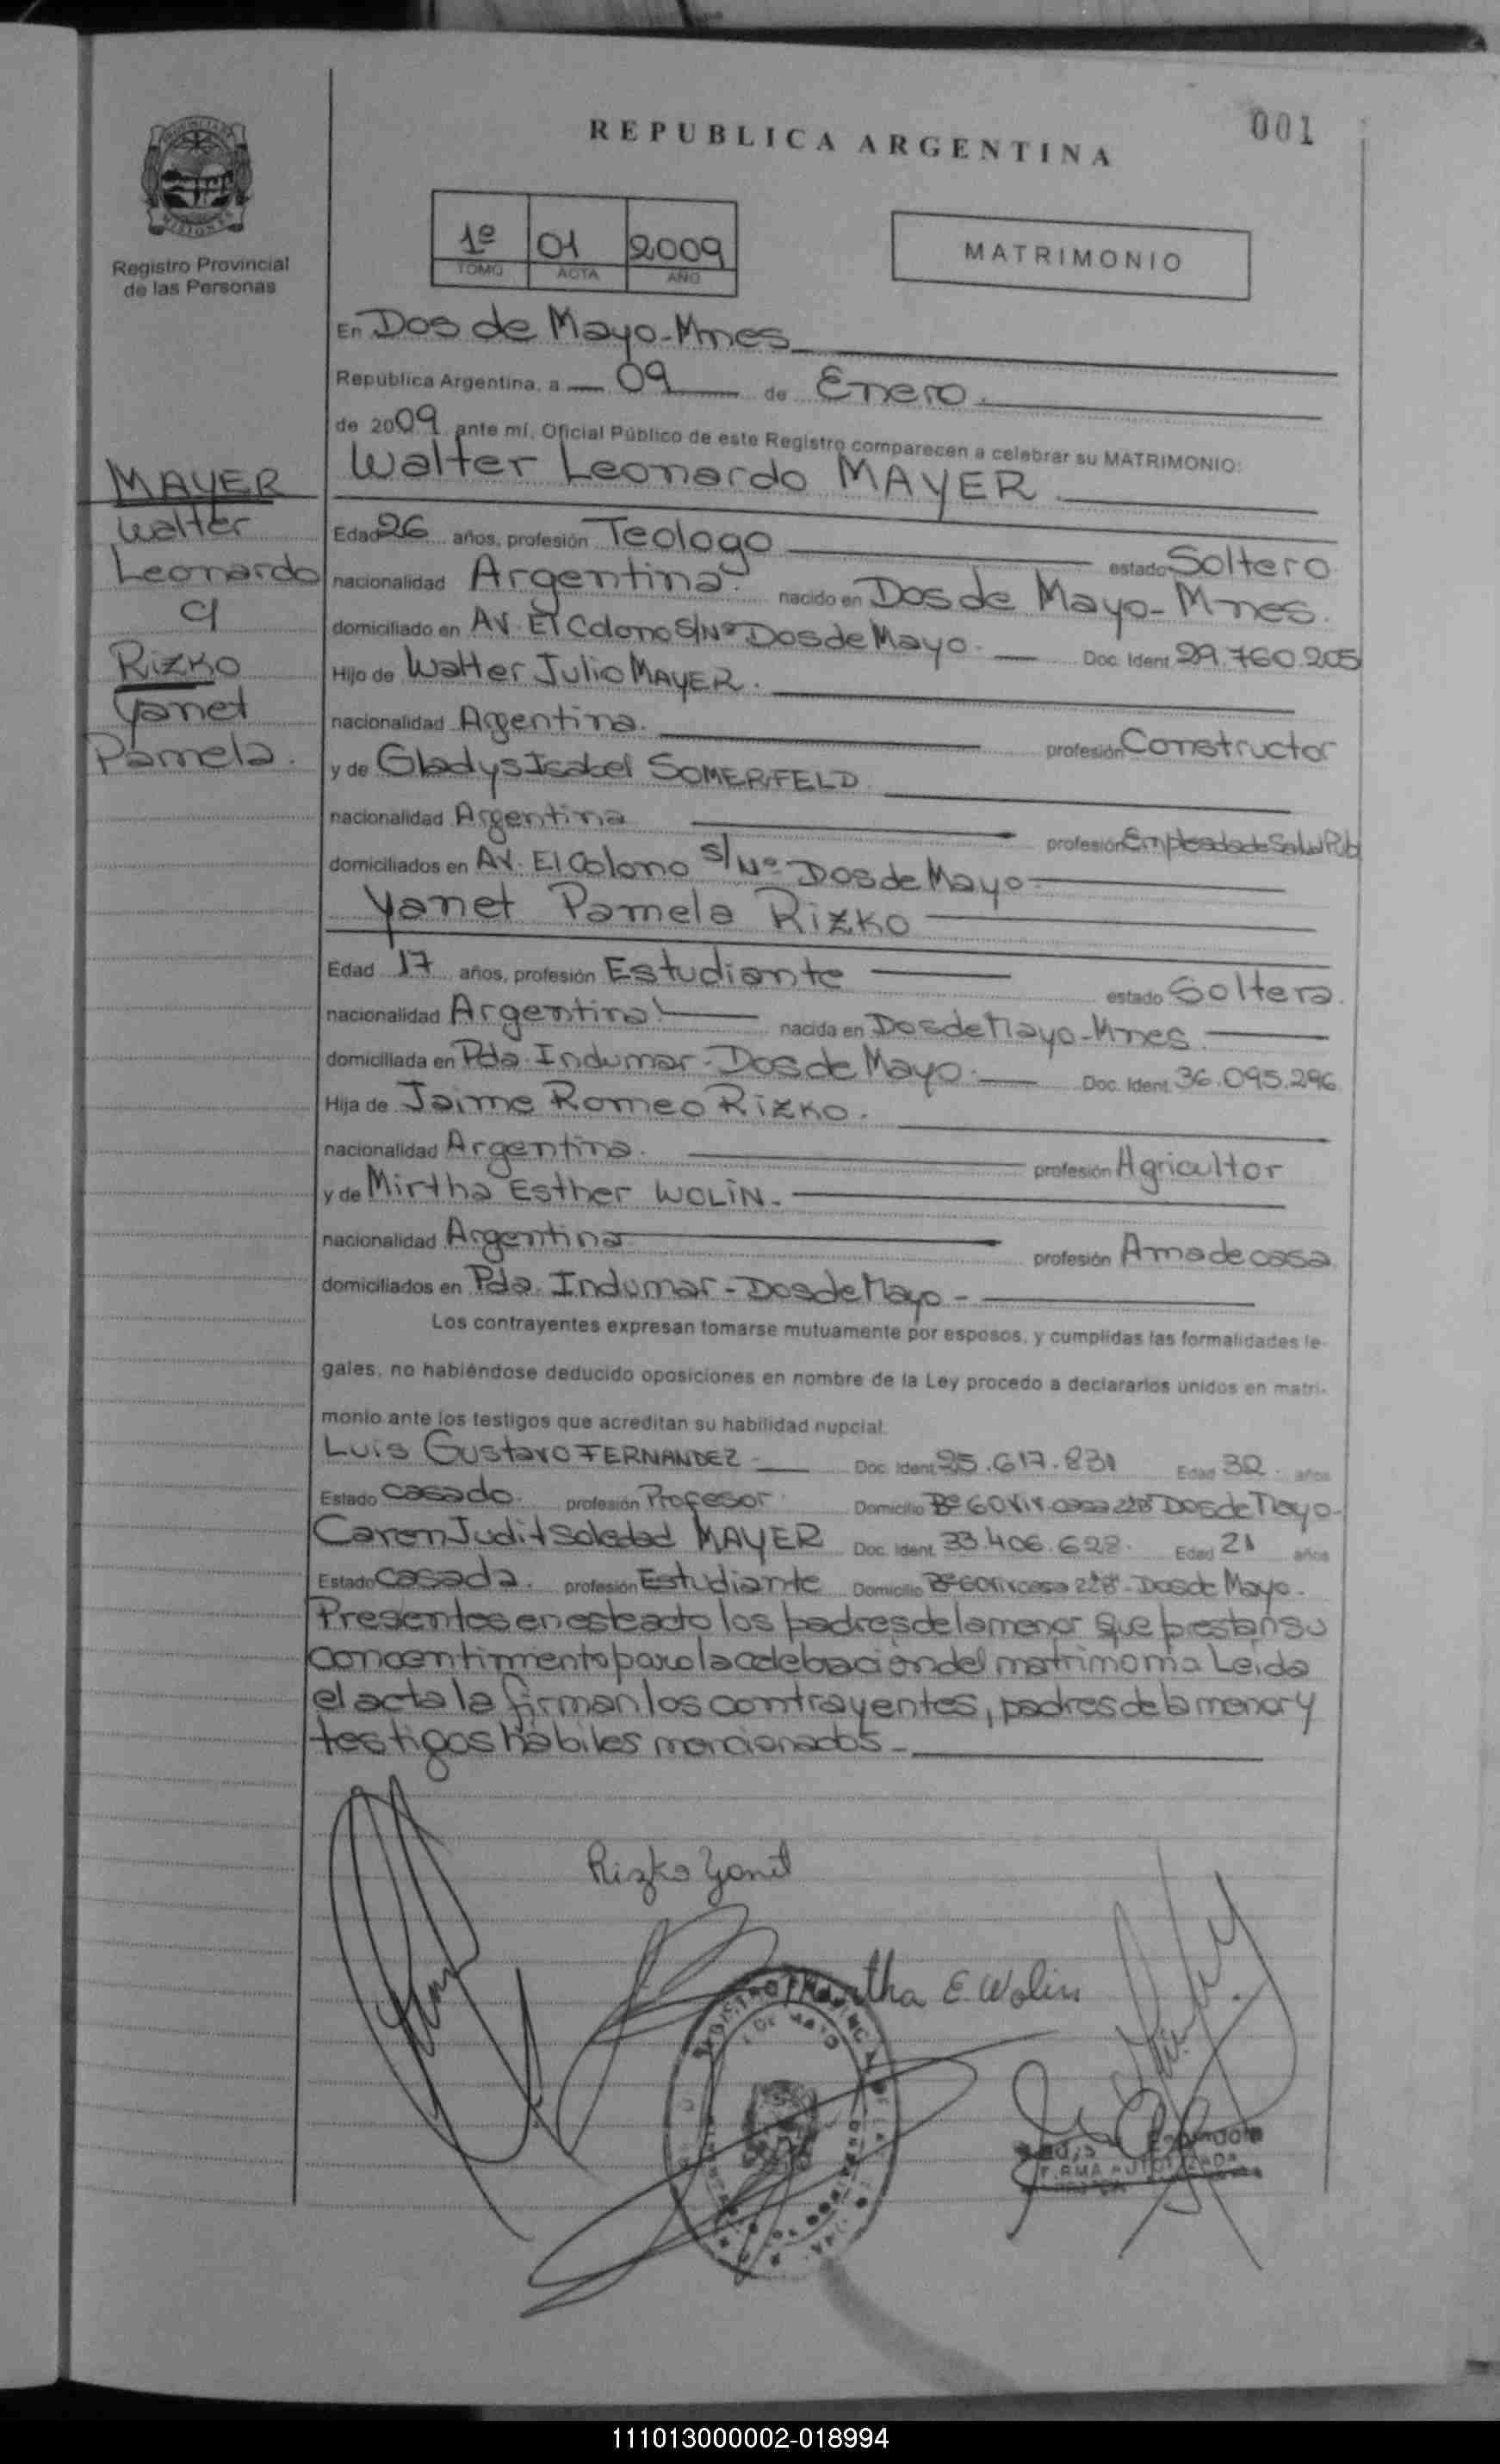 001
REPUBLICA ARGENTINA
Registro Provincial
de las Personas
1º 01 2009
TOMO ACTA AÑO
MATRIMONIO
En Dos de Mayo-Mnes
República Argentina, a 09 de Enero.
de 2009 ante mí, Oficial Público de este Registro comparecen a celebrar su MATRIMONIO:
Walter Leonardo MAYER.
MAYER
Walter
Leonardo
c/
Rizko
Yanet
Pamela.
Edad 26 años, profesión Teologo estado Soltero
nacionalidad Argentina. nacido en Dos de Mayo-Mnes.
domiciliado en AV. El Colono S/Nº Dos de Mayo. Doc. Ident. 29.760.205
Hijo de Walter Julio MAYER.
nacionalidad Argentina. profesión Constructor
y de Gladys Isabel SOMERFELD
nacionalidad Argentina profesión Empleada de Salud Púb
domiciliados en AV. El Colono S/Nº Dos de Mayo-
Yanet Pamela Rizko
Edad 17 años, profesión Estudiante estado Soltera.
nacionalidad Argentina nacida en Dos de Mayo-Mnes.
domiciliada en Pda. Indumar-Dos de Mayo. Doc. Ident. 36.095.296
Hija de Jaime Romeo Rizko.
nacionalidad Argentina. profesión Agricultor
y de Mirtha Esther WOLIN.
nacionalidad Argentina profesión Ama de casa
domiciliados en Pda. Indumar-Dos de Mayo-
Los contrayentes expresan tomarse mutuamente por esposos, y cumplidas las formalidades le-
gales, no habiéndose deducido oposiciones en nombre de la Ley procedo a declararlos unidos en matri-
monio ante los testigos que acreditan su habilidad nupcial.
Luis Gustavo FERNANDEZ Doc. Ident. 25.617.831 Edad 32. años
Estado Casado. profesión Profesor Domicilio Bº 60 Viv. casa 228 Dos de Mayo-
Caren Judit Soledad MAYER Doc. Ident. 33.406.628. Edad 21 años
Estado Casada. profesión Estudiante Domicilio Bº 60 Viv casa 228-Dos de Mayo.
Presentes en este acto los padres de la menor que prestan su
concentimiento para la celebración del matrimonio. Leida
el acta la firman los contrayentes, padres de la menor y
testigos habiles mencionados-
Rizko Yanet
Mirtha E. Wolin
FIRMA AUTORIZADA
111013000002-018994